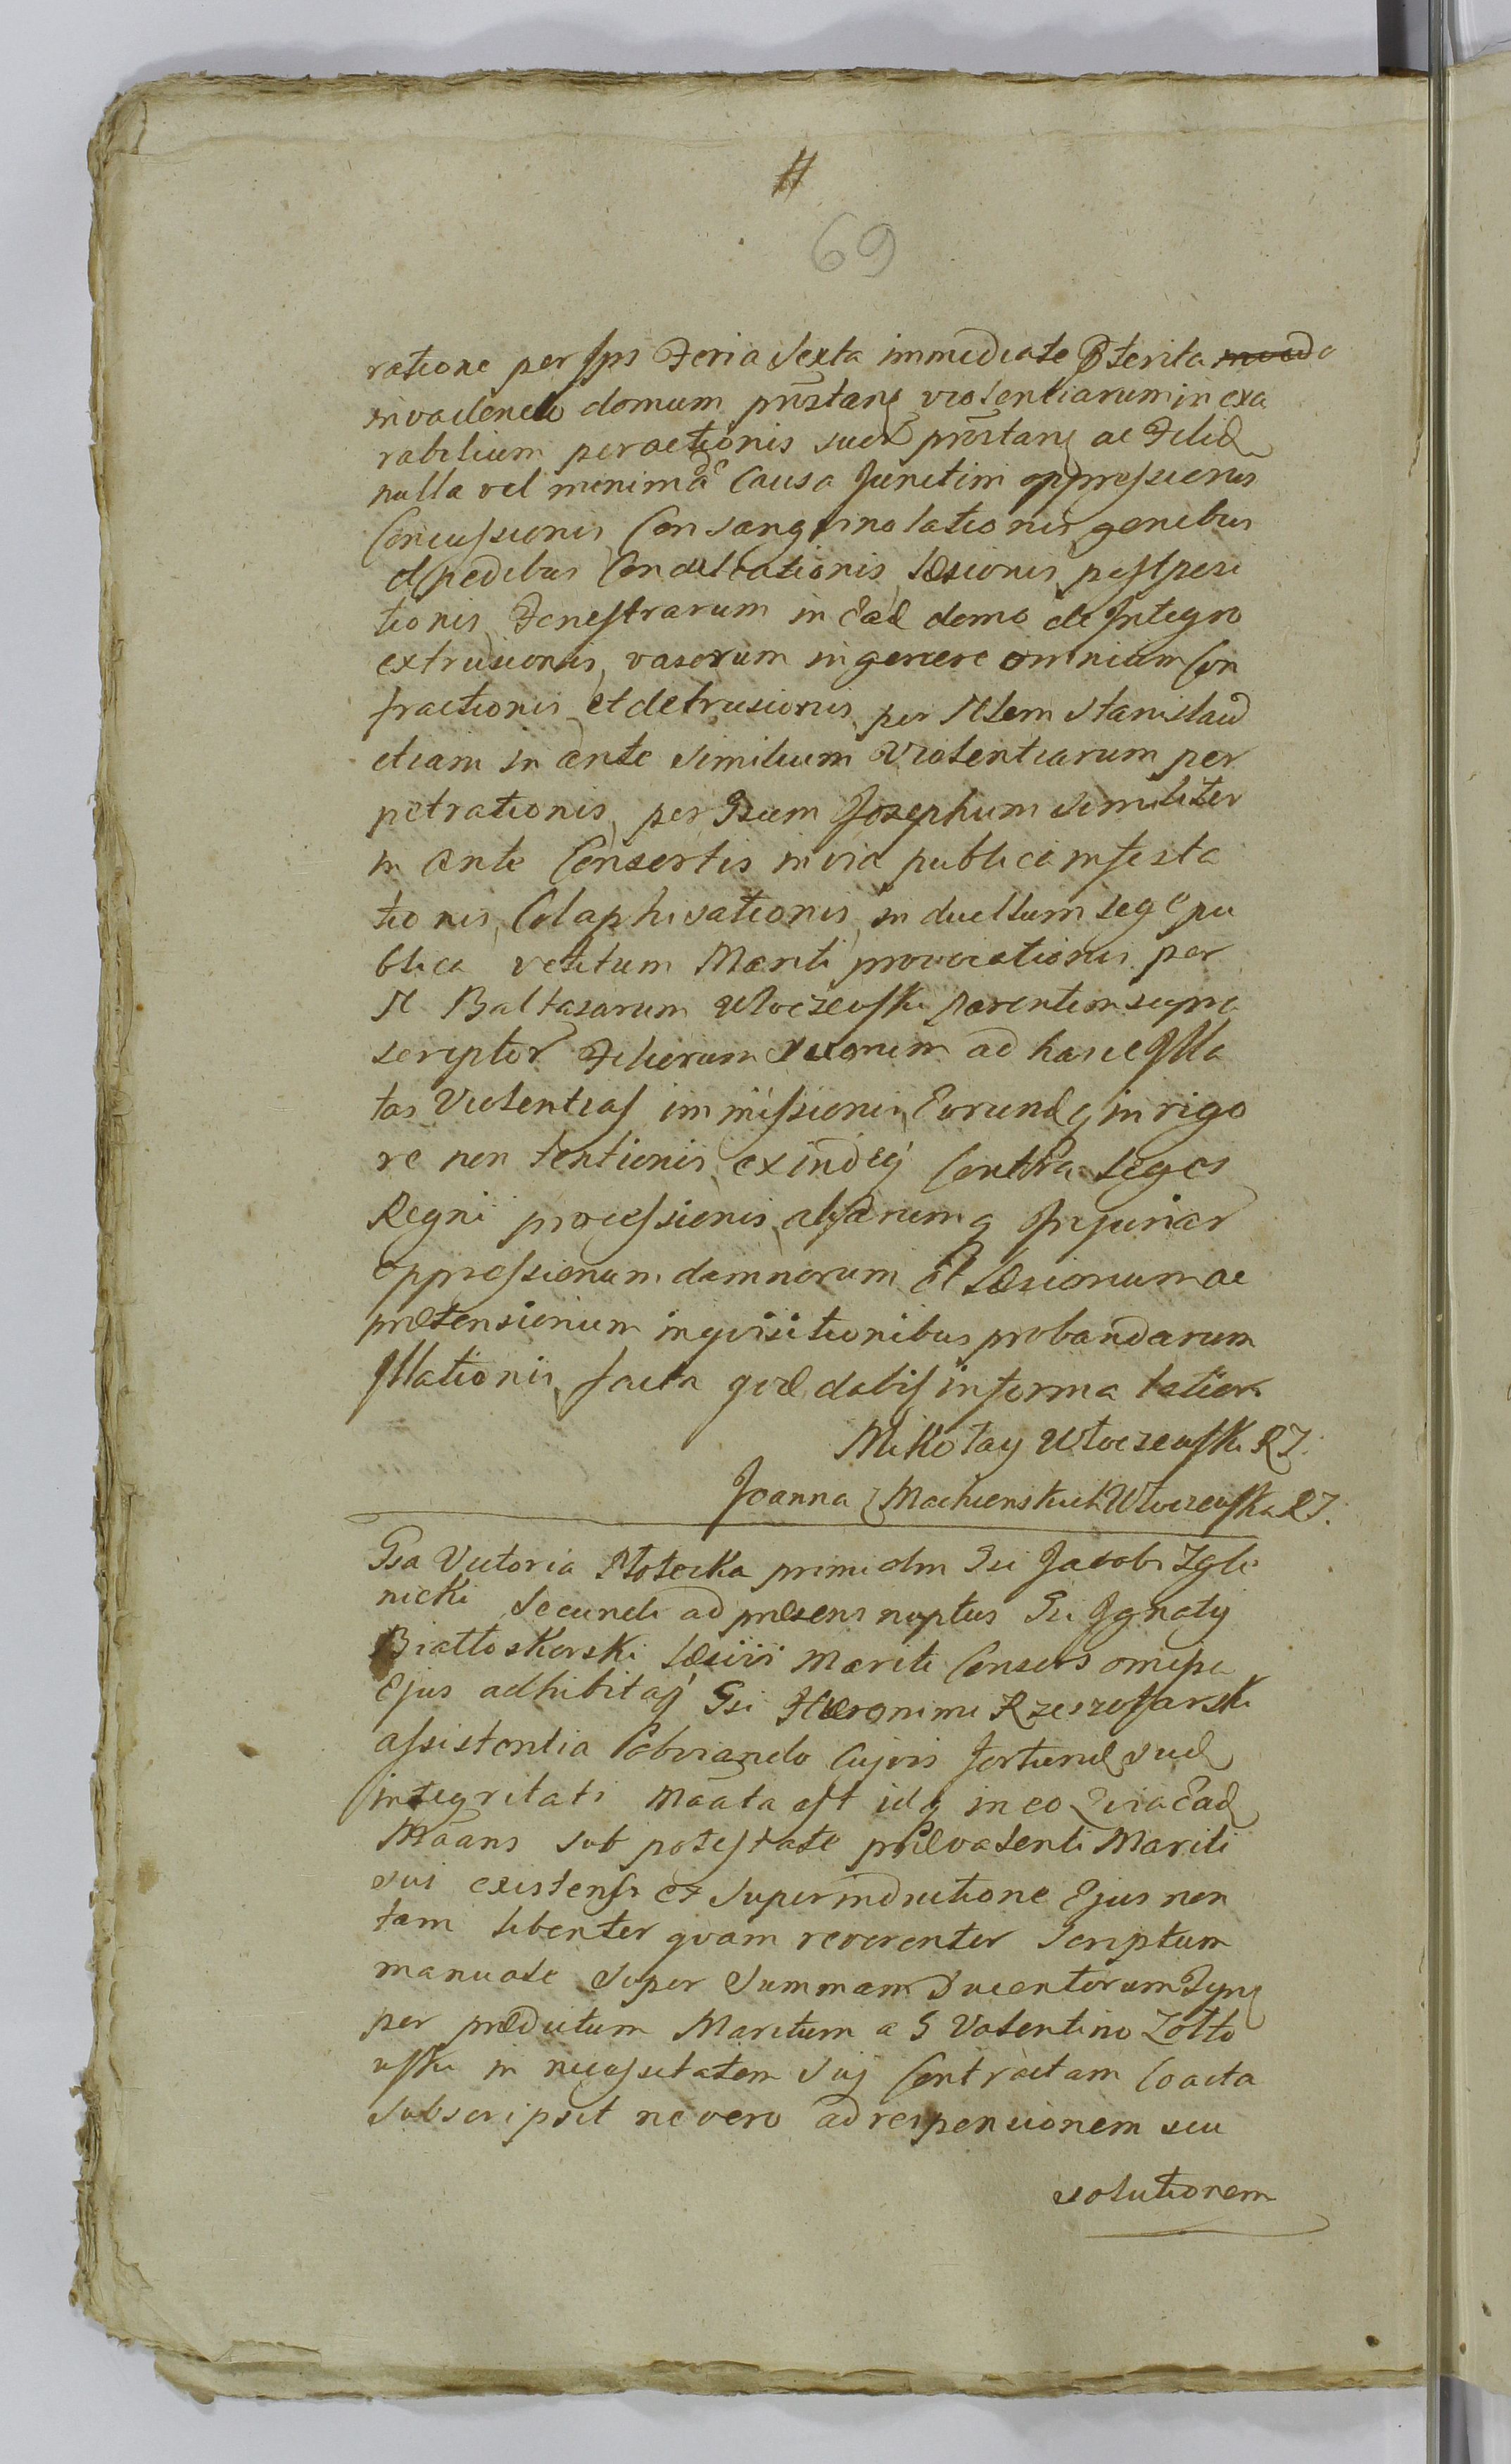 #
69
ratione per Ips Feria Sexta immediate Pterita
invadendo domum pnstang violentiarum in exa
rabilium peractionis suor pnstang ac Filiæ
nulla vel minima de Causa Junctim oppressionis
Concussionis Consangvinolationis genibus
et pedibus Conculcationis læsionis
tionis Fenestrarum in Ead domo de Integro
extrusionis, vasorum in genere omnium Con
fractionis et detrusionis per Nlem Stanislaum
etiam in ante similium Violentiarum per
petrationis, per Gsum Josephum similiter
in ante Consortis in via publica infesta
tionis, Colaphisationis in duellum lege pu
blica vetitum Mariti provocationis per
N Baltasarum Włoczewski Parentem supra
scriptor Filiorum suorum ad hasce Illa
tas Violentias immissionis, Eorundq in rigo
re non tentionis exindeq Contra leges
Regni processionis aliarumq Injuriar
oppressionum damnorum et læsionum ac
prætensionum inqvisitionibus probandarum
Illationis, facta qvæ dabis in forma latior.
Mikołay Włoczewski RJ.
Joanna z Machcinskich Włoczewska RJ.
Gsa Victoria Płotocka primi olm Gsi Jacobi Zgli
nicki Secundi ad præsens nuptus Gsi Ignaty
Białłoskorski læsivi Mariti Consors omissa
Ejus adhibitaq Gsi Hieronimi
assistentia Obviando Cujvis fortunæ suæ
integritati Maata est idq in eo Qvia Ead
Maans sub potestate prævalenti Mariti
sui existens et Superinductione Ejus non
tam libenter qvam reverenter Scriptum
manuale Super Summam Ducentorum
per prædictum Maritum a G Valentino Zołto
wski in necessitatem Sui Contractam Coacta
Subscripsit ne vero ad responsionem seu
solutionem